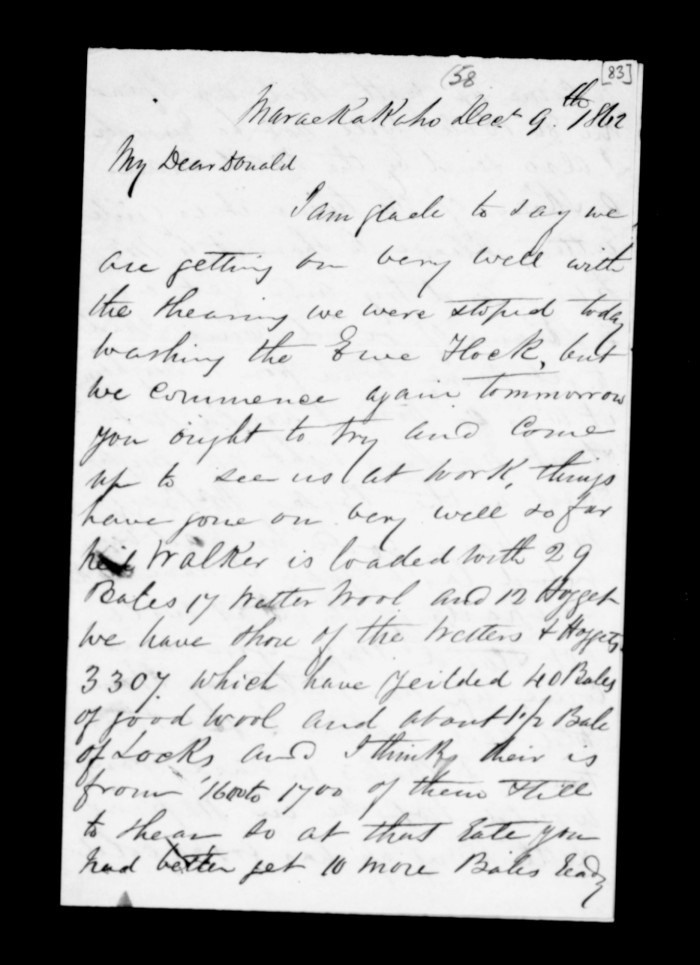 (58
83]
Maraekakaho Decr 9th 1862
My Dear Donald
I am glade to say we
are getting on very well with
the shearing we were stoped today
washing the Ewe Flock, but
we commence again tommorrow
you ought to try and Come
up to see us at work, things
have gone on very well so far
Walker is loaded with 29
Bales 17 Wetter Wool and 12 Hogget
we have shore of the Wetters & Hoggets
3307 which have yeilded 40 Bales
of good wool and about 1 1/2 Bale
of Locks and I think their is
from 1600 to 1700 of them still
to shear so at that rate you
had better get 10 more Bales ready